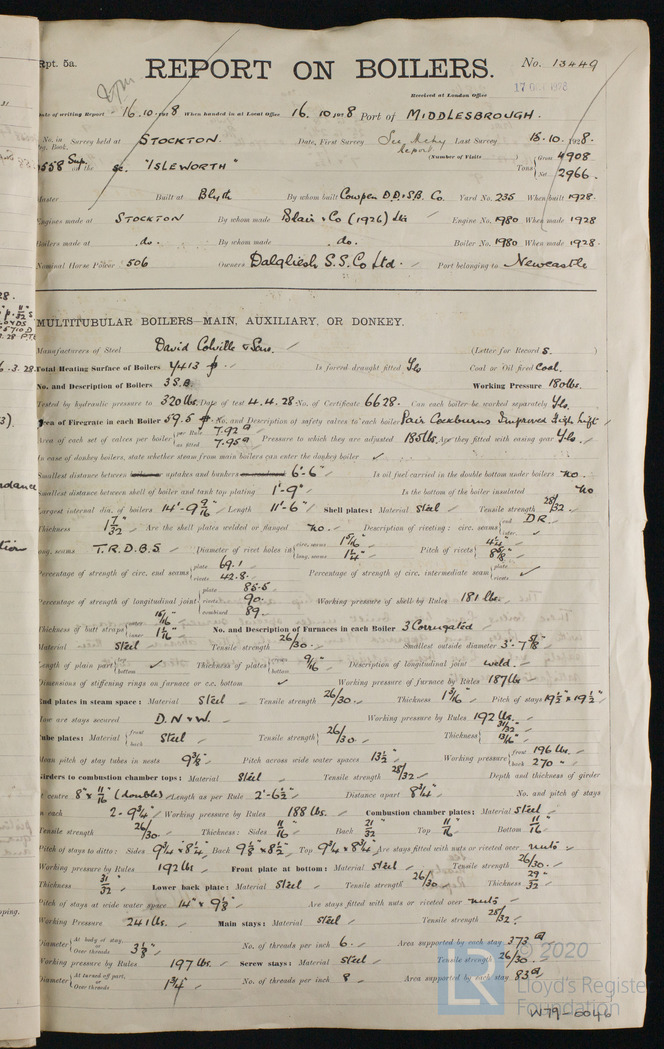 Rpt. 5a.
REPORT ON BOILERS.
No. 13449
Received at London Office
17 OCT 1928
Date of writing Report 16.10.1928 When handed in at Local Office 16.10.1928 Port of MIDDLESBROUGH.
No. in Reg. Book. Survey held at STOCKTON. Date, First Survey See Mchy Report Last Survey 15.10.1928.
(Number of Visits
558 Sup. on the sc. "ISLEWORTH" Tons Gross 4908 Net 2966.
Master Built at Blyth By whom built Cowpen D.D. & S.B. Co. Yard No. 235 When built 1928.
Engines made at STOCKTON By whom made Blair & Co (1926) Ltd Engine No. 1980 When made 1928
Boilers made at do. By whom made do. Boiler No. 1980 When made 1928.
Nominal Horse Power 506 Owners Dalgliesh S.S. Co Ltd. Port belonging to Newcastle
MULTITUBULAR BOILERS—MAIN, AUXILIARY, OR DONKEY.
Manufacturers of Steel David Colville & Sons. (Letter for Record S. )
Total Heating Surface of Boilers 7413 Is forced draught fitted Yes Coal or Oil fired Coal.
No. and Description of Boilers 3 S.B. Working Pressure 180 lbs.
Tested by hydraulic pressure to 320 lbs. Date of test 4.4.28 No. of Certificate 6628. Can each boiler be worked separately Yes.
Area of Firegrate in each Boiler 59.5 No. and Description of safety valves to each boiler Pair Cockburns Improved High lift
Area of each set of valves per boiler per Rule 7.92 as fitted 7.95 Pressure to which they are adjusted 185 lbs. Are they fitted with easing gear Yes.
In case of donkey boilers, state whether steam from main boilers can enter the donkey boiler ✓
Smallest distance between boilers or uptakes and bunkers 6'-6" Is oil fuel carried in the double bottom under boilers no.
Smallest distance between shell of boiler and tank top plating 1'-9" Is the bottom of the boiler insulated no
Largest internal dia. of boilers 14'-9 9/16" Length 11'-6" Shell plates: Material Steel Tensile strength 28/32.
Thickness 1 7/32" Are the shell plates welded or flanged no. Description of riveting: circ. seams end D.R. inter.
long. seams T.R.D.B.S Diameter of rivet holes in circ. seams 1 5/16" long. seams 1 1/4" Pitch of rivets 4 1/4" 8 5/8"
Percentage of strength of circ. end seams plate 69.1 rivets 42.8. Percentage of strength of circ. intermediate seam plate rivets ✓
Percentage of strength of longitudinal joint plate 85.5. rivets 90. combined 89. Working pressure of shell by Rules 181 lbs.
Thickness of butt straps outer 15/16" inner 1 1/16" No. and Description of Furnaces in each Boiler 3 Corrugated
Material Steel Tensile strength 26/30. Smallest outside diameter 3'-7 5/8"
Length of plain part top bottom ✓ Thickness of plates crown bottom 9/16" Description of longitudinal joint weld.
Dimensions of stiffening rings on furnace or c.c. bottom ✓ Working pressure of furnace by Rules 187 lbs
End plates in steam space: Material Steel Tensile strength 26/30. Thickness 1 5/16" Pitch of stays 19 1/2" x 19 1/2"
How are stays secured D.N & W. Working pressure by Rules 192 lbs.
Tube plates: Material front back Steel Tensile strength 26/30. Thickness 31/32" 13/16"
Mean pitch of stay tubes in nests 9 3/8" Pitch across wide water spaces 13 1/2" Working pressure front 196 lbs. back 270 "
Girders to combustion chamber tops: Material Steel Tensile strength 28/32 Depth and thickness of girder
at centre 8" x 11/16" (doubles) Length as per Rule 2'-6 1/2" Distance apart 8 3/4" No. and pitch of stays
in each 2-9 3/4" Working pressure by Rules 188 lbs. Combustion chamber plates: Material Steel
Tensile strength 26/30 Thickness: Sides 11/16" Back 21/32 Top 11/16" Bottom 11/16"
Pitch of stays to ditto: Sides 9 3/4 x 8 1/4 Back 9 1/8" x 8 1/2" Top 9 3/4 x 8 3/4 Are stays fitted with nuts or riveted over nuts
Working pressure by Rules 192 lbs Front plate at bottom: Material Steel Tensile strength 26/30.
Thickness 31/32 Lower back plate: Material Steel Tensile strength 26/30 Thickness 29/32"
Pitch of stays at wide water space 14" x 9 1/8" Are stays fitted with nuts or riveted over nuts
Working Pressure 241 lbs. Main stays: Material Steel Tensile strength 28/32
Diameter At body of stay, or Over threads 3 1/8" No. of threads per inch 6. Area supported by each stay 373
Working pressure by Rules 197 lbs. Screw stays: Material Steel Tensile strength 26/30
Diameter At turned off part, or Over threads 1 3/4" No. of threads per inch 8 Area supported by each stay 83
© 2020
Lloyd's Register
Foundation
W79-0046